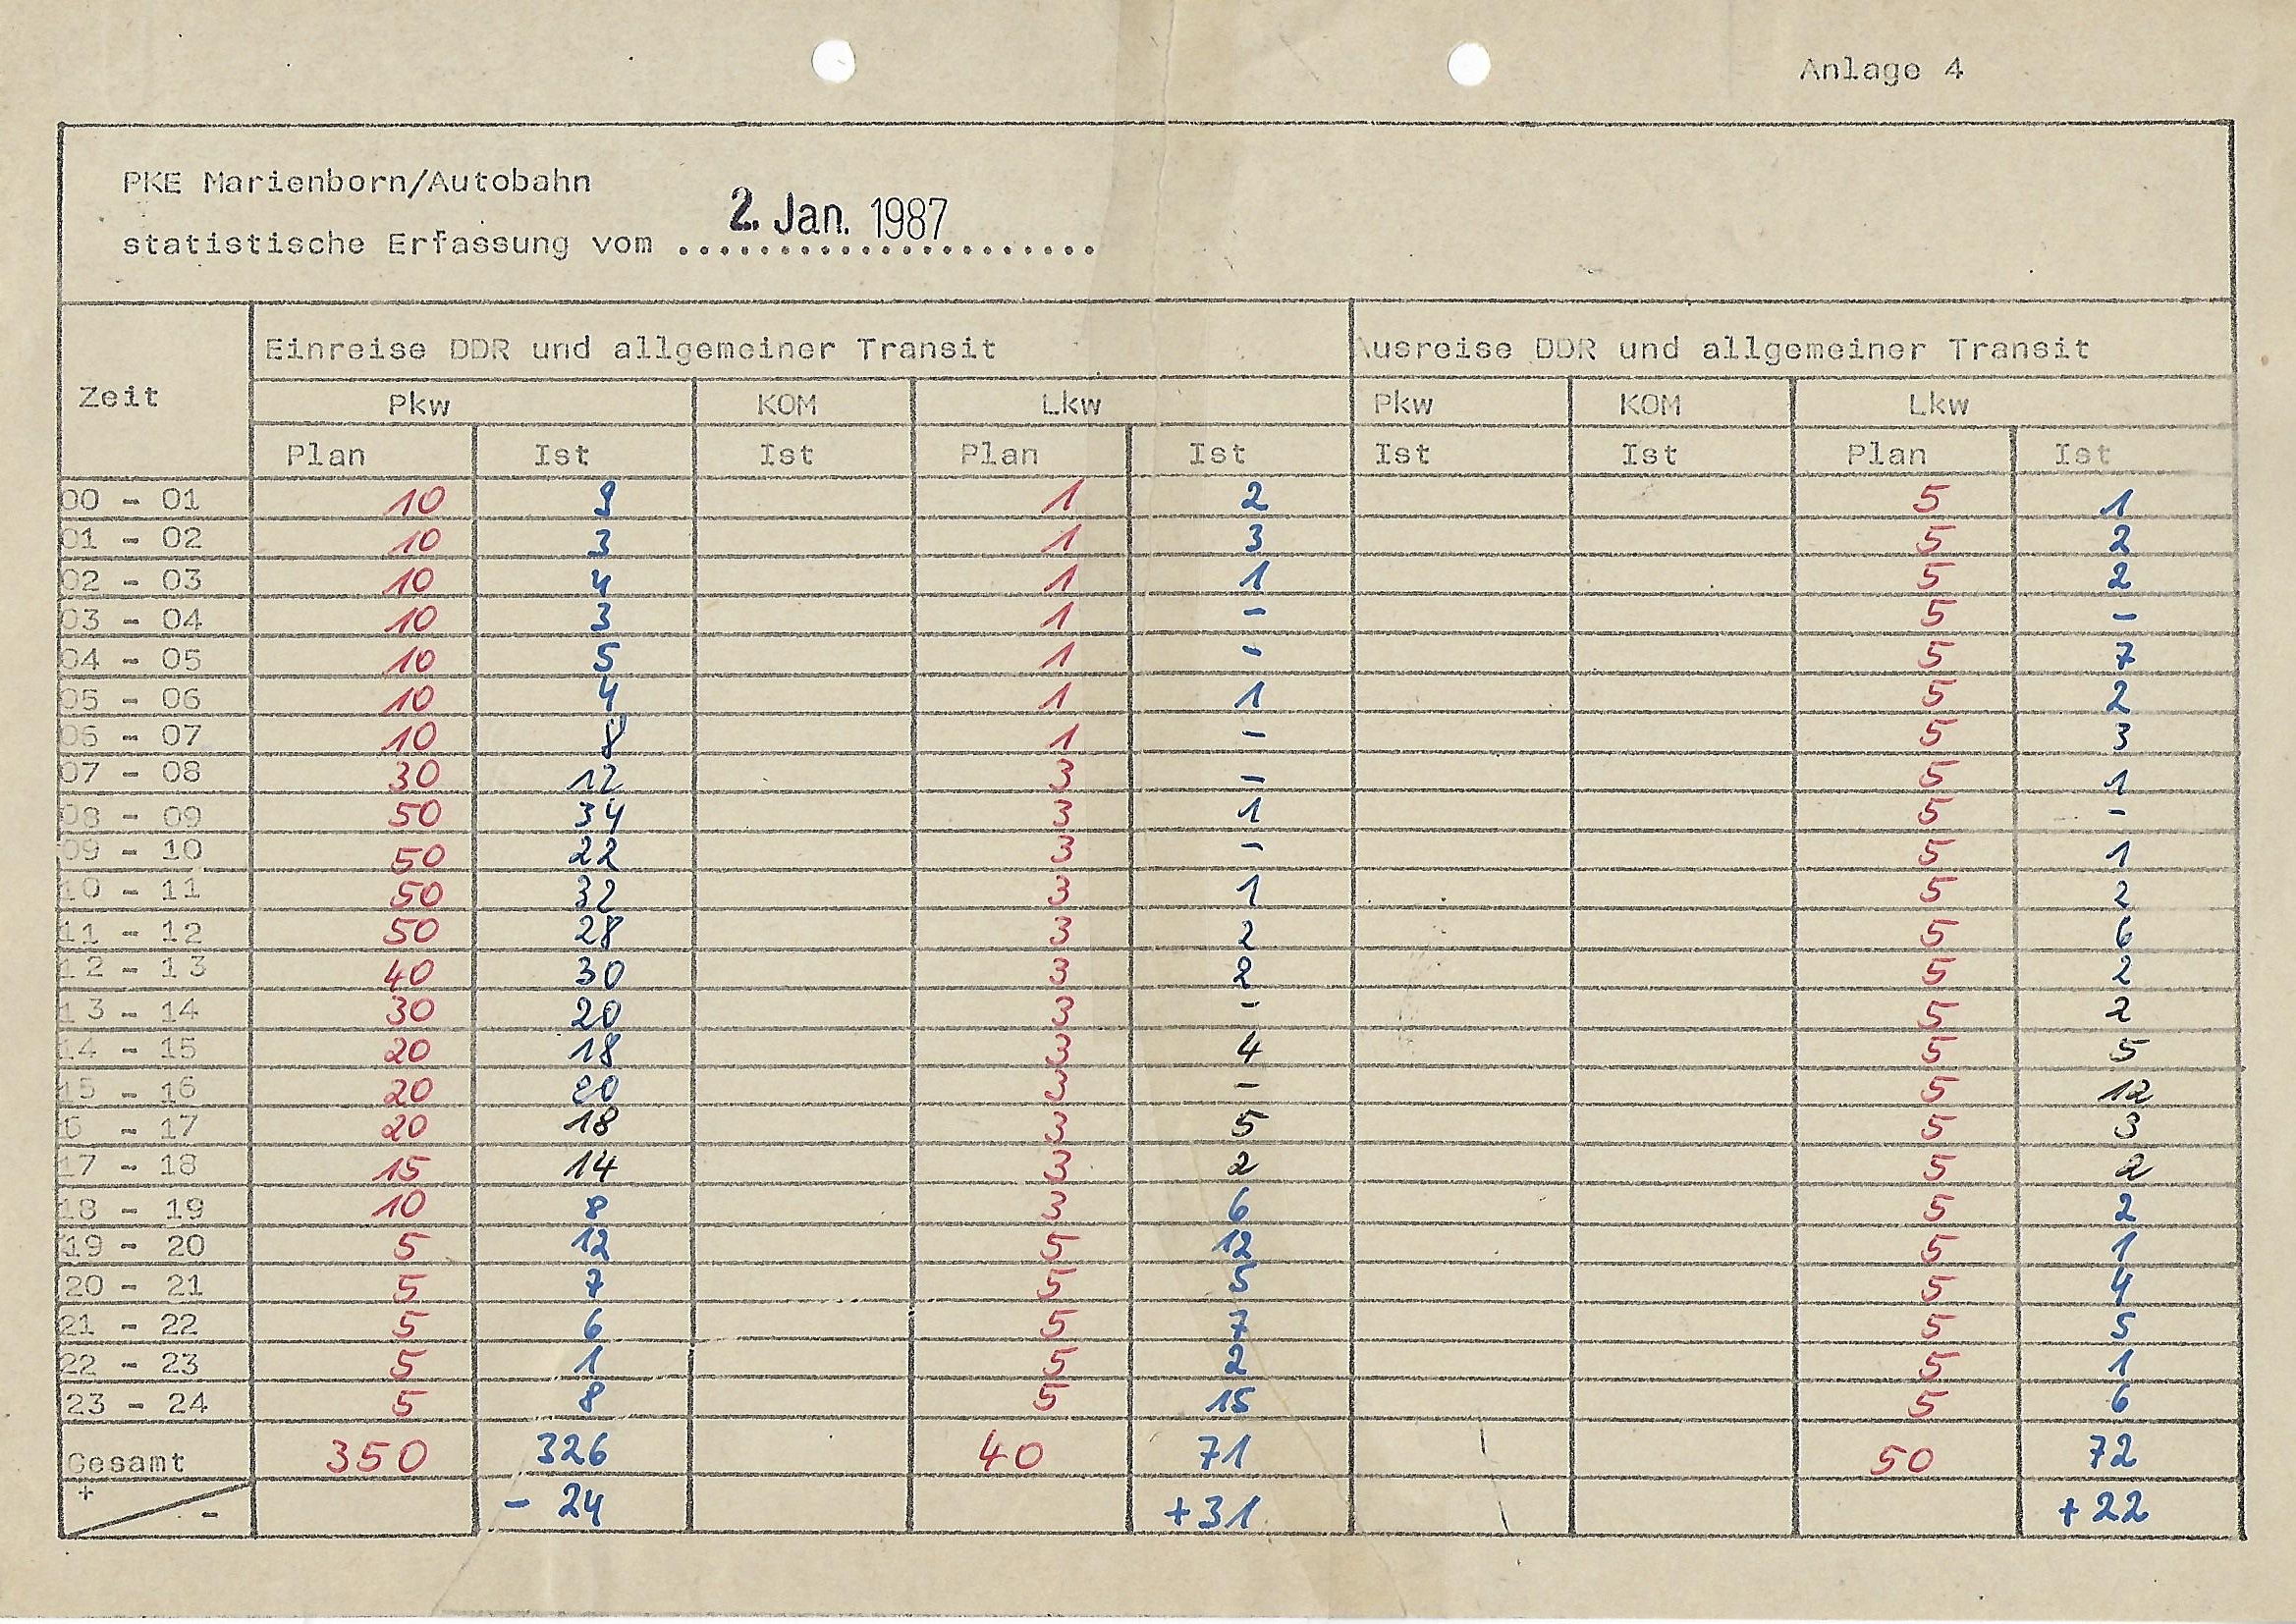 Anlage 4
PKE Marienborn/Autobahn
2. Jan. 1987
statistische Erfassung vom .....................
Einreise DDR und allgemeiner Transit Ausreise DDR und allgemeiner Transit
Zeit
Pkw KOM Lkw Pkw KOM Lkw
Plan Ist Ist Plan Ist Ist Ist Plan Ist
00 - 01 10 9 1 2 5 1
01 - 02 10 3 1 3 5 2
02 - 03 10 4 1 1 5 2
03 - 04 10 3 1 - 5 -
04 - 05 10 5 1 - 5 7
05 - 06 10 4 1 1 5 2
06 - 07 10 8 1 - 5 3
07 - 08 30 12 3 - 5 1
08 - 09 50 34 3 1 5 -
09 - 10 50 22 3 - 5 1
10 - 11 50 32 3 1 5 2
11 - 12 50 28 3 2 5 6
12 - 13 40 30 3 2 5 2
13 - 14 30 20 3 - 5 2
14 - 15 20 18 3 4 5 5
15 - 16 20 20 3 - 5 12
6 - 17 20 18 3 5 5 3
17 - 18 15 14 3 2 5 2
18 - 19 10 8 3 6 5 2
19 - 20 5 12 5 12 5 1
20 - 21 5 7 5 5 5 4
21 - 22 5 6 5 7 5 5
22 - 23 5 1 5 2 5 1
23 - 24 5 8 5 15 5 6
Gesamt 350 326 40 71 50 72
+ - - 24 +31 +22